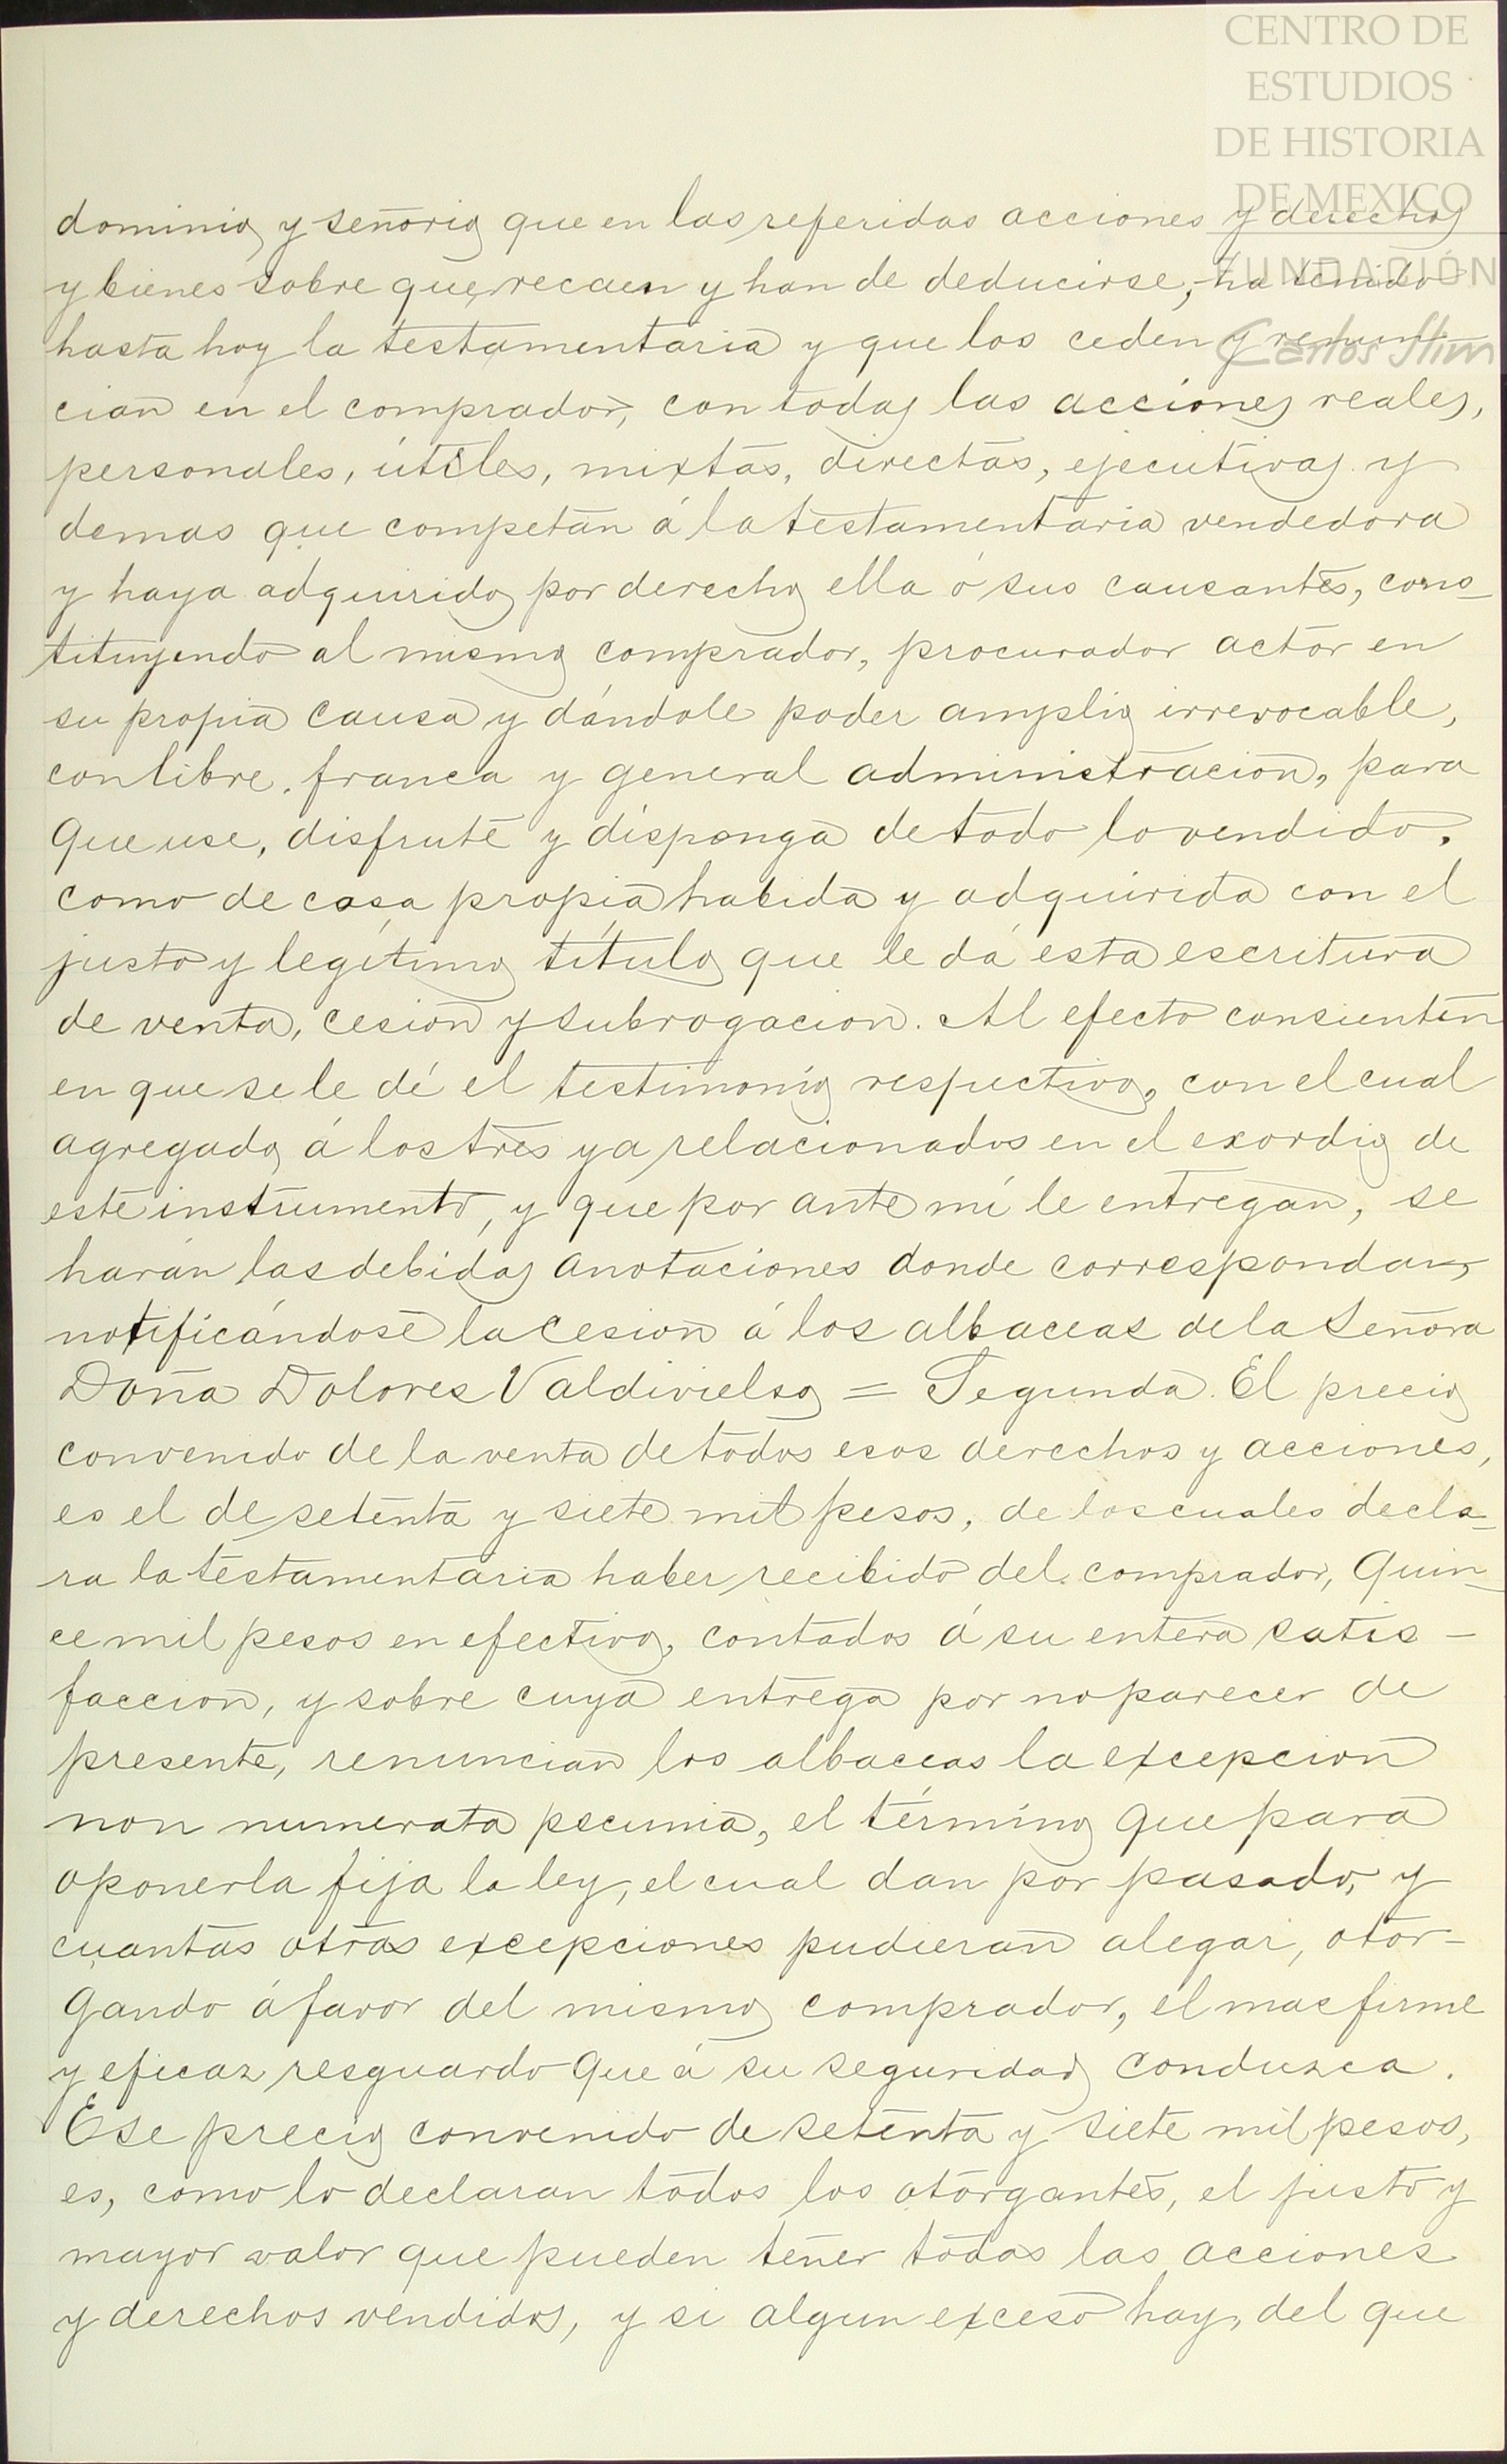 CENTRO DE
ESTUDIOS
DE HISTORIA
DE MEXICO
FUNDACIÓN
Carlos Slim
dominio y señorio que en las referidas acciones y derechos
y bienes sobre que recaen y han de deducirse, ha tenido
hasta hoy la testamentaria y que los ceden y renun-
cian en el comprador, con todas las acciones reales,
personales, útiles, mixtas, directas, ejecutivas y
demas que competan á la testamentaria vendedora
y haya adquirido por derecho ella ó sus causantes, cons-
tituyendo al mismo comprador, procurador actor en
su propia causa y dándole poder amplio irrevocable,
con libre, franca y general administracion, para
que use, disfrute y disponga de todo lo vendido,
como de cosa propia habida y adquirida con el
justo y legítimo título que le dá esta escritura
de venta, cesion y subrogacion. Al efecto consienten
en que se le dé el testimonio respectivo, con el cual
agregado á los tres ya relacionados en el exordio de
este instrumento, y que por ante mí le entregan, se
harán las debidas anotaciones donde correspondan,
notificándose la cesion á los albaceas de la Señora
Doña Dolores Valdivielso = Segunda. El precio
convenido de la venta de todos esos derechos y acciones,
es el de setenta y siete mil pesos, de los cuales decla-
ra la testamentaria haber recibido del comprador, quin-
ce mil pesos en efectivo, contados á su entera satis-
faccion, y sobre cuya entrega por no parecer de
presente, renuncian los albaceas la excepcion
non numerata pecunia, el término que para
oponerla fija la ley, el cual dan por pasado, y
cuantas otras excepciones pudieran alegar, otor-
gando á favor del mismo comprador, el mas firme
y eficaz resguardo que á su seguridad conduzca.
Ese precio convenido de setenta y siete mil pesos,
es, como lo declaran todos los otorgantes, el justo y
mayor valor que pueden tener todas las acciones
y derechos vendidos, y si algun exceso hay, del que